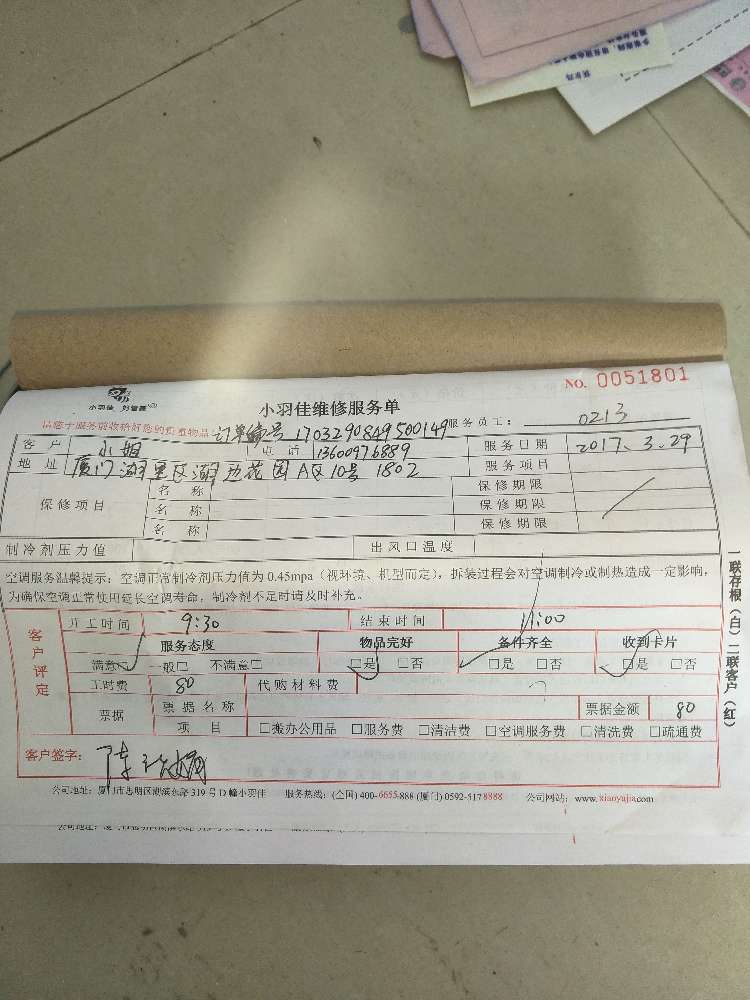 NO. 0051801
小羽佳 好管家
小羽佳维修服务单
订单编号 1703290849500149 服务员工： 0213
客户 小姐 电话 13600976889 服务日期 2017.3.29
地址 厦门湖里区湖边花园A区10号 1802 服务项目
保修项目 名称 保修期限
名称 保修期限
名称 保修期限
制冷剂压力值 出风口温度
空调服务温馨提示：空调正常制冷剂压力值为 0.45mpa（视环境、机型而定），拆装过程会对空调制冷或制热造成一定影响，
为确保空调正常使用延长空调寿命，制冷剂不足时请及时补充。
开工时间 9:30 结束时间 11:00
客户评定
服务态度 物品完好 备件齐全 收到卡片
满意 一般□ 不满意□ □是 □否 □是 □否 □是 □否
工时费 80 代购材料费
票据 票据名称 票据金额 80
项目 □搬办公用品 □服务费 □清洁费 □空调服务费 □清洗费 □疏通费
客户签字： 陈
公司地址：厦门市思明区湖滨东路 319 号 D 幢小羽佳 服务热线：(全国) 400-6655-888 (厦门) 0592-5178888 公司网站：www.xiaoyujia.com
一联存根（白）二联客户（红）